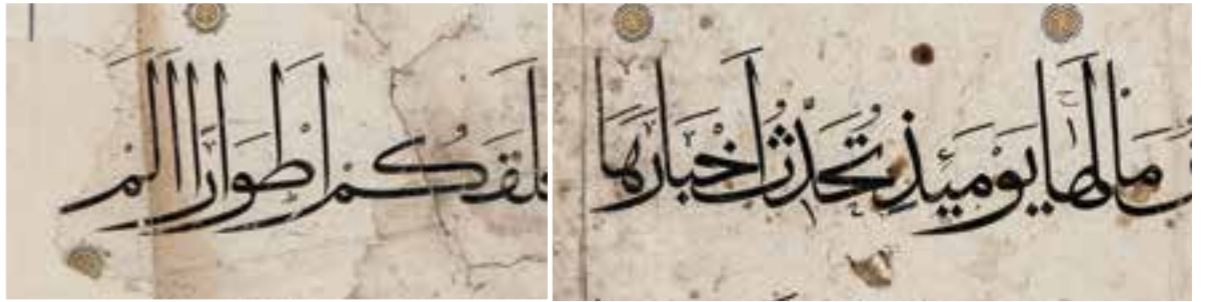 مَا لَهَا يَوْمَئِذٍ تُحَدِّثُ اَخْبَارَهَا
خلَقَكُمْ اَطْوَارًا اَلَمْ